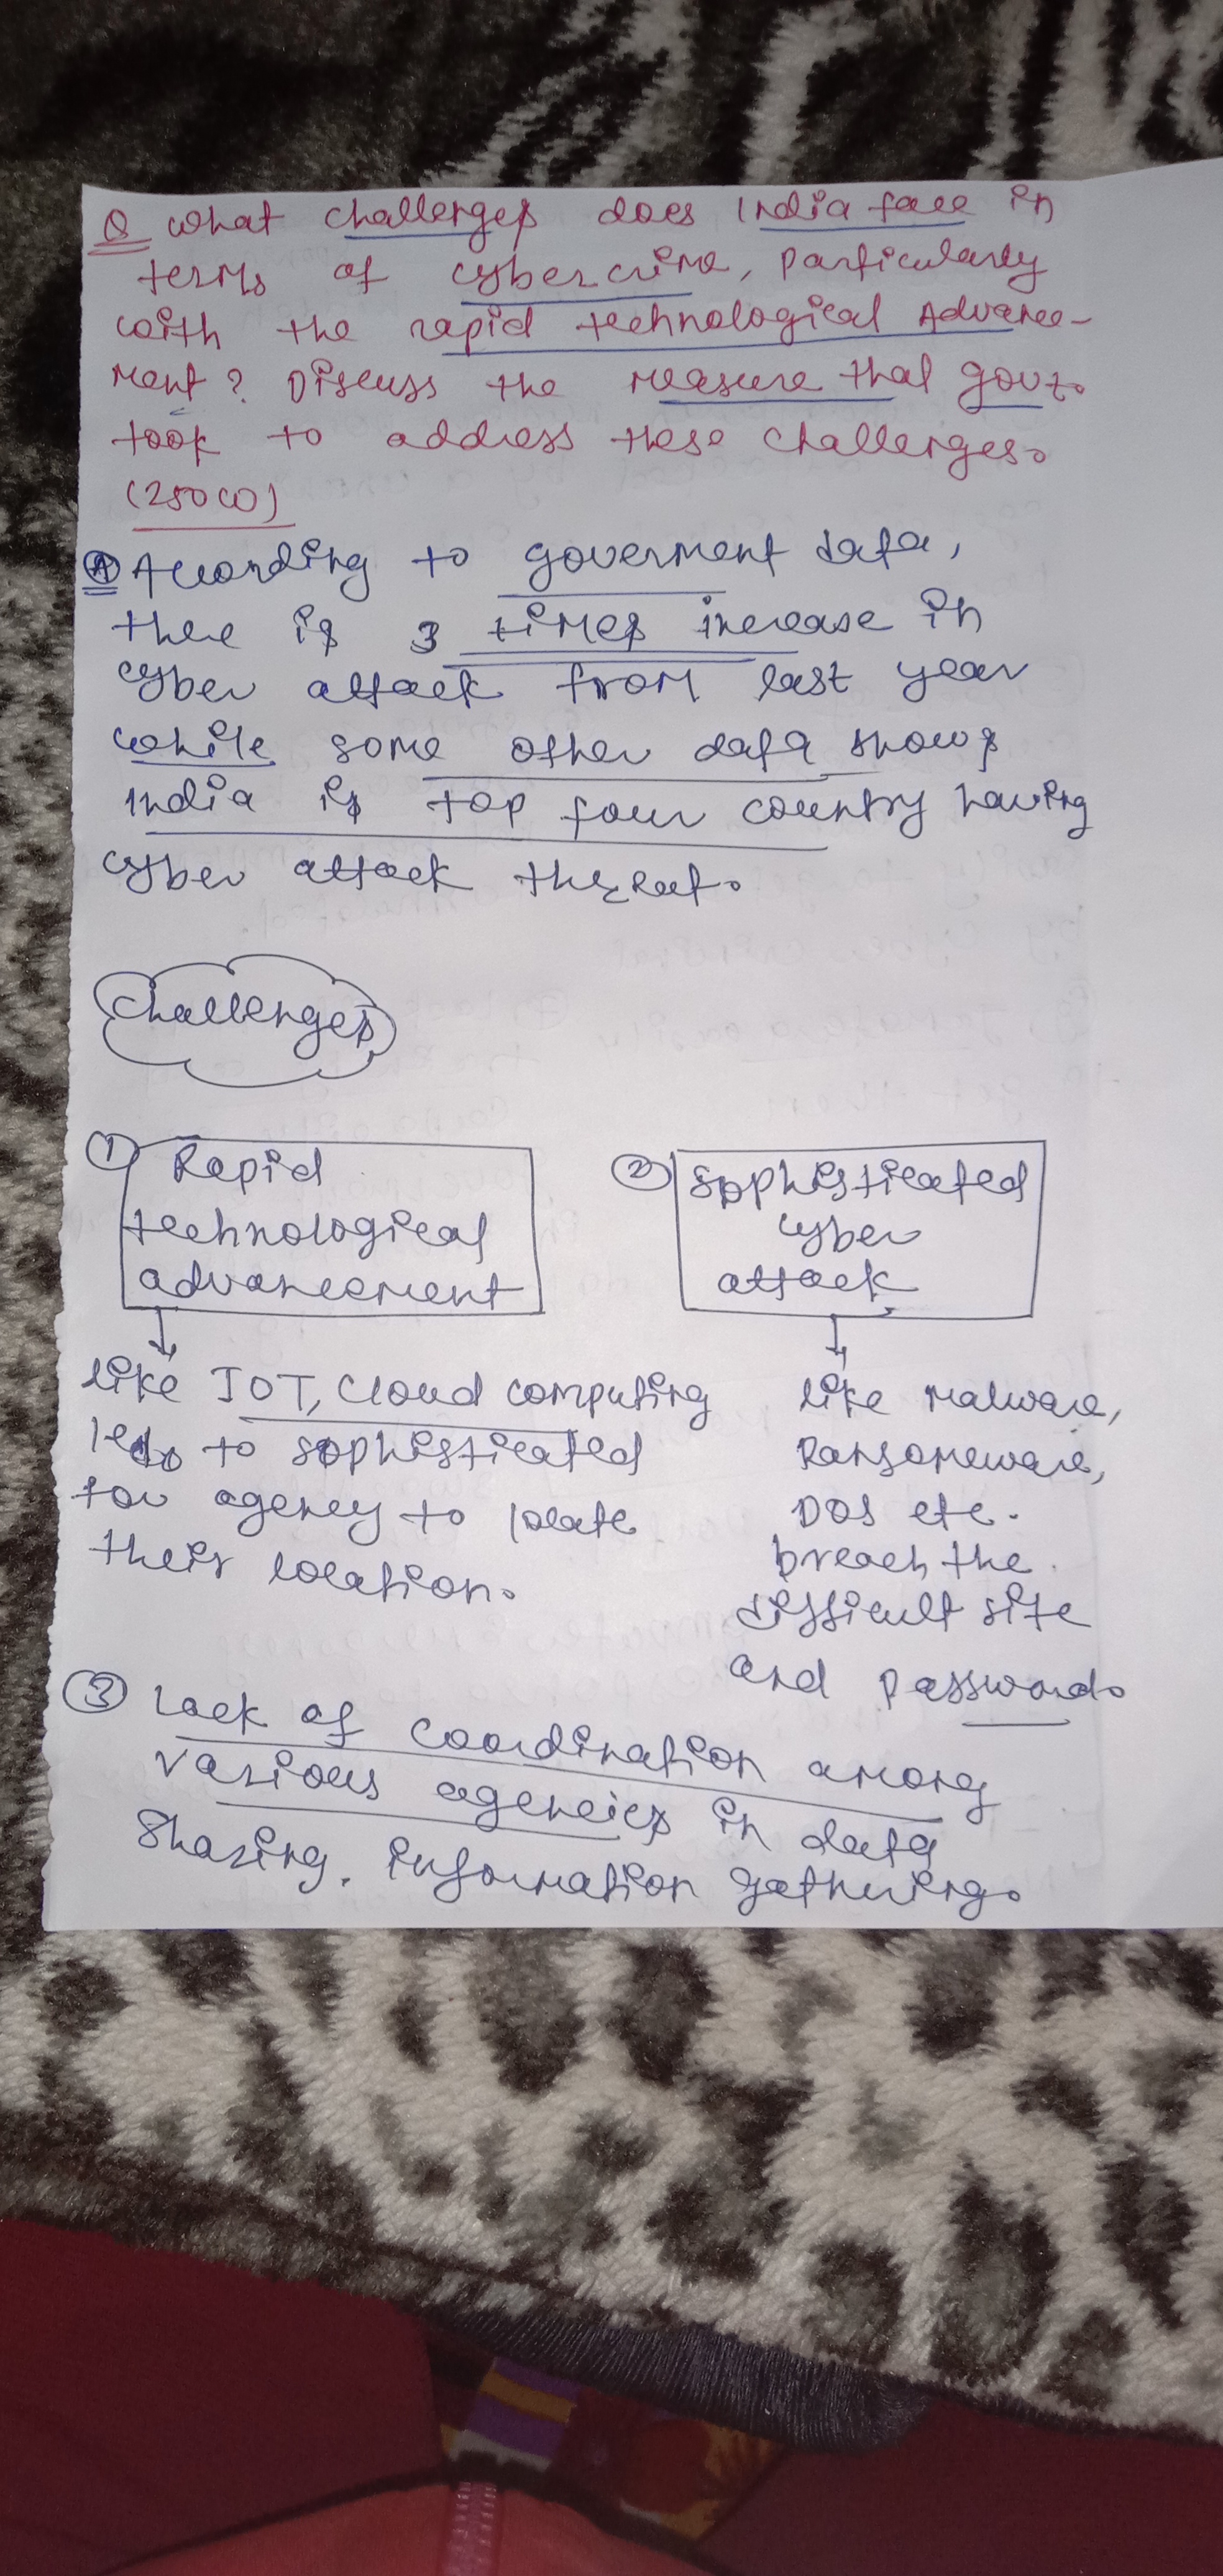 Q what challenges does India face in
terms of cybercrime, particularly
with the rapid technological Advance-
ment? Discuss the measure that govt.
took to address these challenges.
(250 w)
A According to goverment data,
there is 3 times increase in
cyber attack from last year
while some other data shows
India is top four country having
cyber attack thereat.
Challenges
① Rapid
technological
advancement
like IOT, cloud computing
led to sophisticated
for agency to locate
their location.
② Sophisticated
cyber
attack
like malware,
Ransomeware,
DOS etc.
breach the
difficult site
and password.
③ Lack of coordination among
various agencies in data
sharing, information gathering.